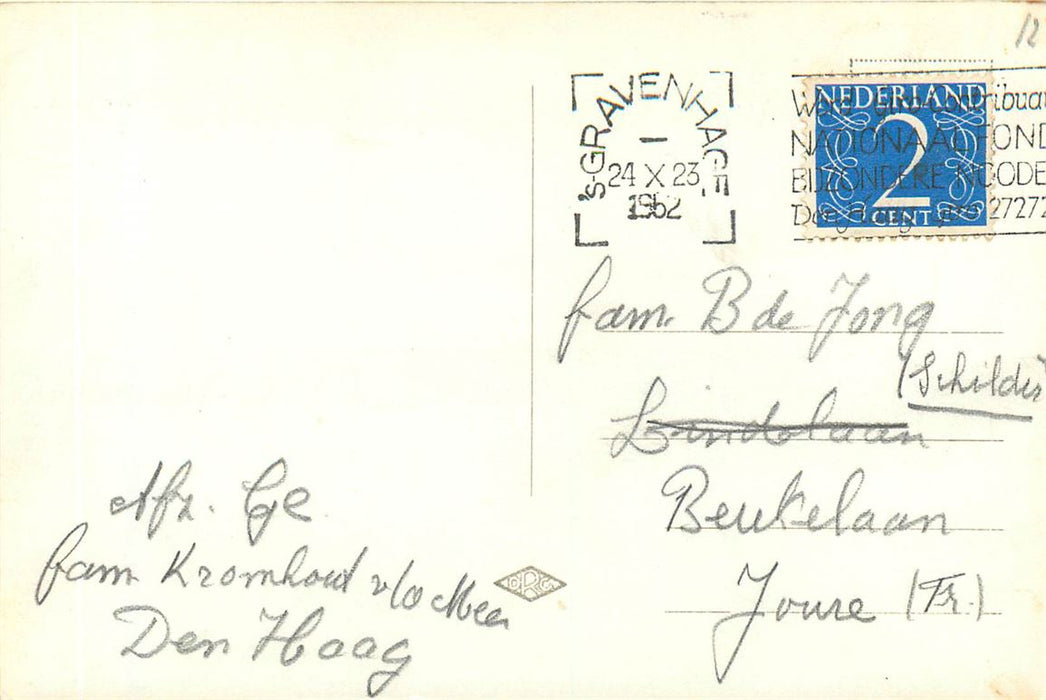 12
's-GRAVENHAGE
24 X 23
1952
NEDERLAND
2
CENT
Word giro-contribuan
NATIONAAL FOND
BIJZONDERE NOODE
Den Haag giro 27272
fam. B de Jong
(Schilder
Lindelaan
Beukelaan
Joure (Fr.)
Afz. Ge
fam Kromhout v/d Meer
Den Haag